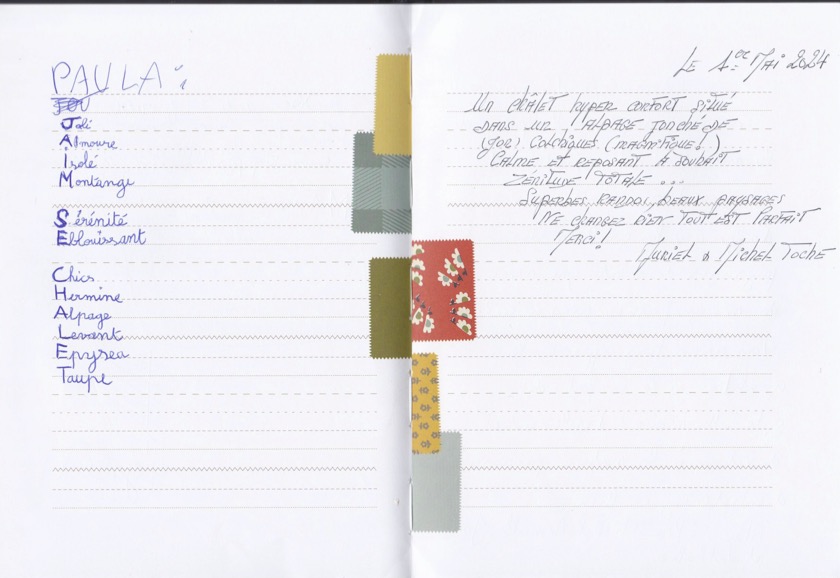 PAULA :
JOU
Joli
Aimoure
Isolé
Montange
Sérénité
Eblouissant
Chics
Hermine
Alpage
Levant
Epysea
Taupe
LE 1er MAI 2024
UN CHÂLET hyper confort SITUÉ
DANS UN ALPAGE JONCHÉ DE
COLCHIQUES (MAGNIFIQUE !)
CALME ET REPOSANT A SOUHAIT
ZENITUDE TOTALE ...
SUPERBES RANDOS, BEAUX PAYSAGES
NE CHANGEZ RIEN TOUT EST PARFAIT
MERCI !
MURIEL & MICHEL TOCHE